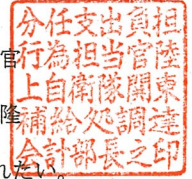 分任支出負担
官
行為担当官陸
上自衛隊関東
隆
補給処調達
会計部長之印
れたい。